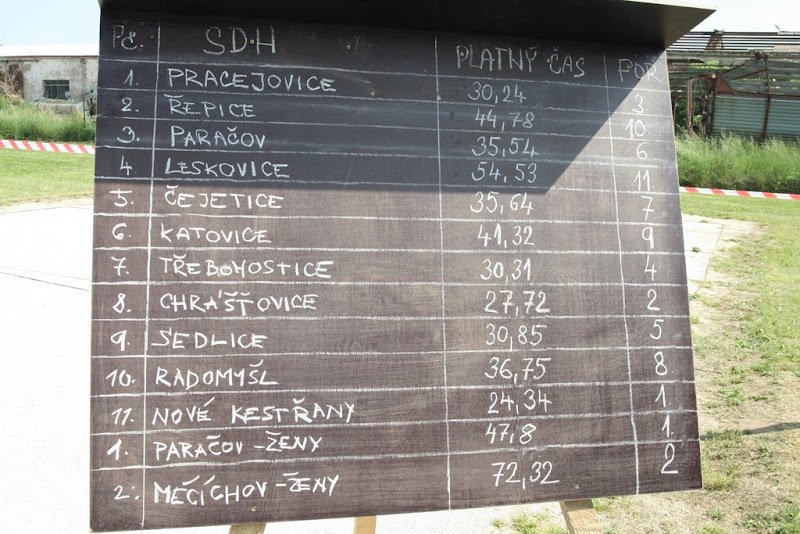 Pč. SDH PLATNÝ ČAS POŘ
1. PRACEJOVICE 30,24 3
2. ŘEPICE 44,78 10
3. PARAČOV 35,54 6
4. LESKOVICE 54,53 11
5. ČEJETICE 35,64 7
6. KATOVICE 41,32 9
7. TŘEBOHOSTICE 30,31 4
8. CHRÁŠŤOVICE 27,72 2
9. SEDLICE 30,85 5
10. RADOMYŠL 36,75 8
11. NOVÉ KESTŘANY 24,34 1
1. PARAČOV-ŽENY 47,8 1.
2. MEČÍCHOV-ŽENY 72,32 2